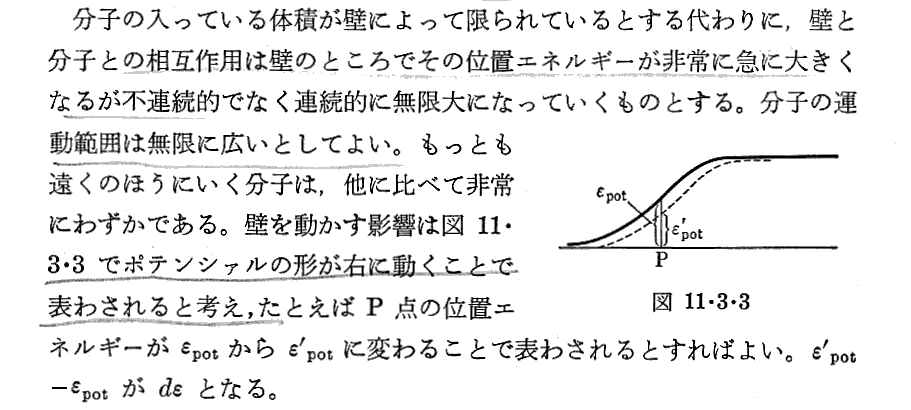 分子の入っている体積が壁によって限られているとする代わりに，壁と
分子との相互作用は壁のところでその位置エネルギーが非常に急に大きく
なるが不連続的でなく連続的に無限大になっていくものとする。分子の運
動範囲は無限に広いとしてよい。もっとも
遠くのほうにいく分子は，他に比べて非常
にわずかである。壁を動かす影響は図 11・
3・3 でポテンシァルの形が右に動くことで
表わされると考え，たとえば P 点の位置エ
ネルギーが εpot から ε′pot に変わることで表わされるとすればよい。ε′pot
−εpot が dε となる。
εpot
ε′pot
P
図 11・3・3